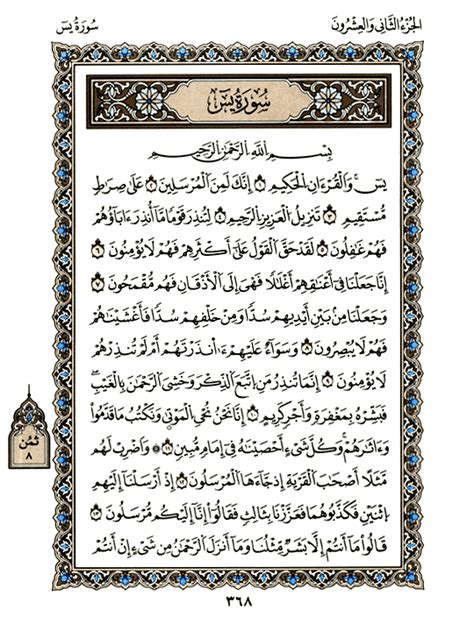 الجُزْءُ الثَّانِي وَالعِشْرُونَ
سُورَةُ يسٓ
سُورَةُ يسٓ
بِسْمِ اللَّهِ الرَّحْمَٰنِ الرَّحِيمِ
يسٓ وَالْقُرْءَانِ الْحَكِيمِ ١ إِنَّكَ لَمِنَ الْمُرْسَلِينَ ٢ عَلَىٰ صِرَاطٍ
مُّسْتَقِيمٍ ٣ تَنزِيلُ الْعَزِيزِ الرَّحِيمِ ٤ لِتُنذِرَ قَوْمًا مَّا أُنذِرَ ءَابَاؤُهُمْ
فَهُمْ غَٰفِلُونَ ٥ لَقَدْ حَقَّ الْقَوْلُ عَلَىٰ أَكْثَرِهِمْ فَهُمْ لَا يُؤْمِنُونَ ٦
إِنَّا جَعَلْنَا فِي أَعْنَٰقِهِمْ أَغْلَٰلًا فَهِيَ إِلَى الْأَذْقَانِ فَهُم مُّقْمَحُونَ ٧
وَجَعَلْنَا مِن بَيْنِ أَيْدِيهِمْ سُدًّا وَمِنْ خَلْفِهِمْ سُدًّا فَأَغْشَيْنَٰهُمْ
فَهُمْ لَا يُبْصِرُونَ ٨ وَسَوَاءٌ عَلَيْهِمْ ءَا۬نذَرْتَهُمْ أَمْ لَمْ تُنذِرْهُمْ
لَا يُؤْمِنُونَ ٩ إِنَّمَا تُنذِرُ مَنِ اتَّبَعَ الذِّكْرَ وَخَشِيَ الرَّحْمَٰنَ بِالْغَيْبِ
فَبَشِّرْهُ بِمَغْفِرَةٍ وَأَجْرٍ كَرِيمٍ ١٠ إِنَّا نَحْنُ نُحْيِ الْمَوْتَىٰ وَنَكْتُبُ مَا قَدَّمُوا
وَءَاثَٰرَهُمْ وَكُلَّ شَيْءٍ أَحْصَيْنَٰهُ فِي إِمَامٍ مُّبِينٍ ١١ ۞ وَاضْرِبْ لَهُم
مَّثَلًا أَصْحَٰبَ الْقَرْيَةِ إِذْ جَاءَهَا الْمُرْسَلُونَ ١٢ إِذْ أَرْسَلْنَا إِلَيْهِمُ
اثْنَيْنِ فَكَذَّبُوهُمَا فَعَزَّزْنَا بِثَالِثٍ فَقَالُوا إِنَّا إِلَيْكُم مُّرْسَلُونَ ١٣
قَالُوا مَا أَنتُمْ إِلَّا بَشَرٌ مِّثْلُنَا وَمَا أَنزَلَ الرَّحْمَٰنُ مِن شَيْءٍ إِنْ أَنتُمْ
ثُمُن
٨
٣٦٨